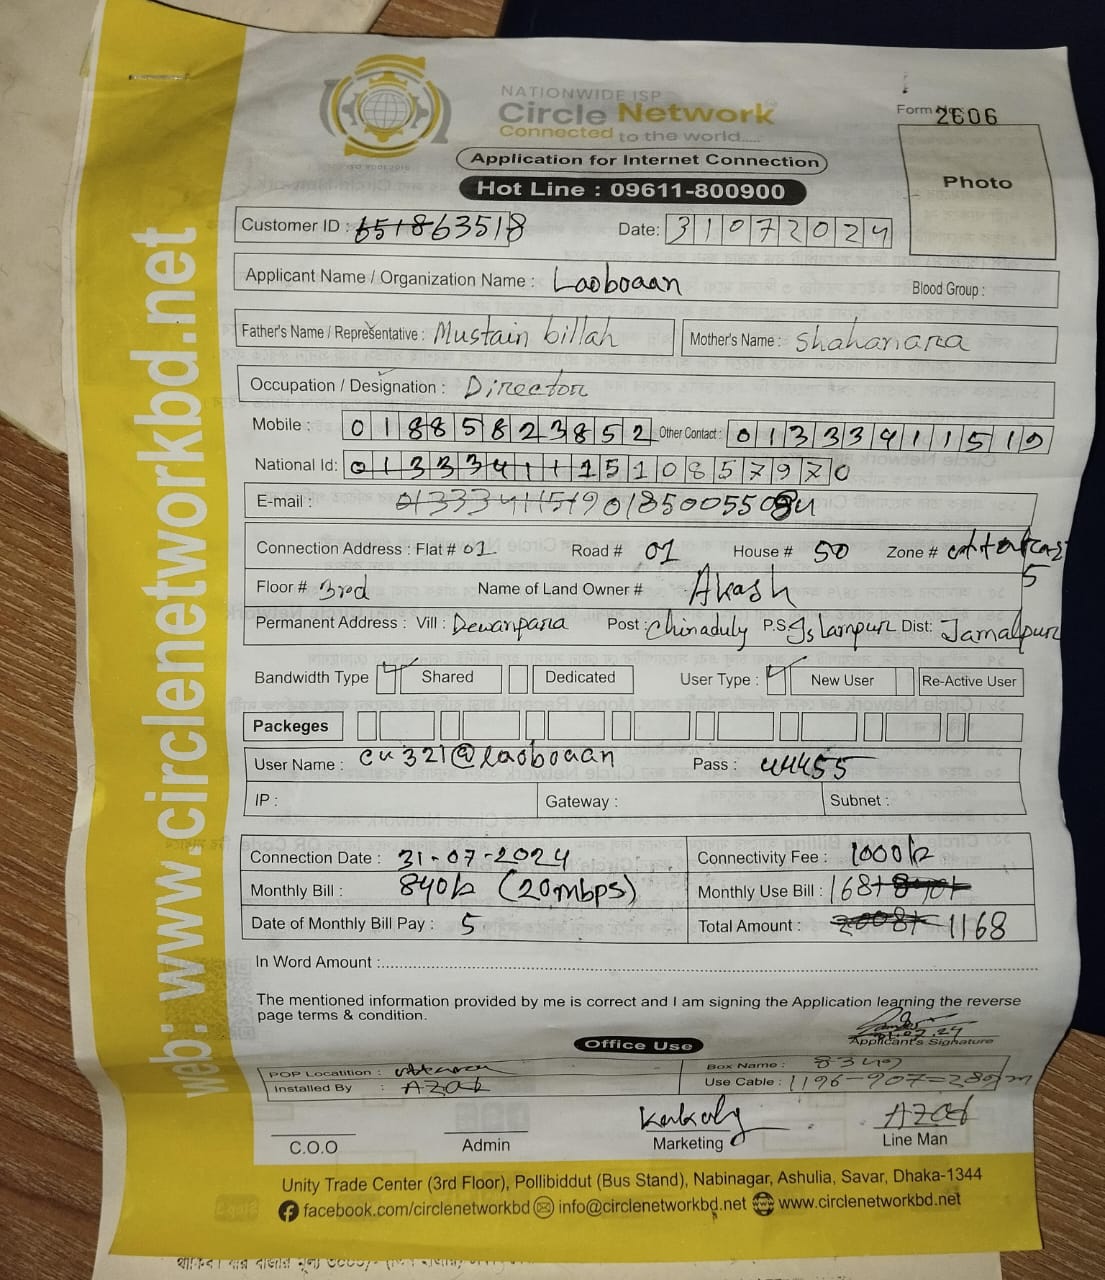 NATIONWIDE ISP
Circle Network
Connected to the world.....
ISO 9001:2015
Form No. 2606
Application for Internet Connection
Hot Line : 09611-800900
Photo
Customer ID : 651863518 Date: 31072024
Applicant Name / Organization Name : Laoboaan Blood Group :
Father's Name / Representative : Mustain billah Mother's Name : Shahanara
Occupation / Designation : Director
Mobile : 01885823852 Other Contact : 01333411519
National Id: 510857970
E-mail : 01850055084
Connection Address : Flat # 01 Road # 01 House # 50 Zone #
5
Floor # 3rd Name of Land Owner # Akash
Permanent Address : Vill : Dewanpara Post : Chinaduly P.S Islampur Dist: Jamalpur
Bandwidth Type Shared Dedicated User Type : New User Re-Active User
Packeges
User Name : cu321@laoboaan Pass : 44455
IP : Gateway : Subnet :
Connection Date : 31-07-2024 Connectivity Fee : 1000/=
Monthly Bill : 840/= (20mbps) Monthly Use Bill : 168+
Date of Monthly Bill Pay : 5 Total Amount : 1168
In Word Amount :
The mentioned information provided by me is correct and I am signing the Application learning the reverse
page terms & condition.
Applicant's Signature
Office Use
POP Locatition : Box Name :
Installed By : AZad Use Cable : 1196-907=289m
AZad
C.O.O Admin Marketing Line Man
Unity Trade Center (3rd Floor), Pollibiddut (Bus Stand), Nabinagar, Ashulia, Savar, Dhaka-1344
facebook.com/circlenetworkbd info@circlenetworkbd.net www.circlenetworkbd.net
web: www.circlenetworkbd.net